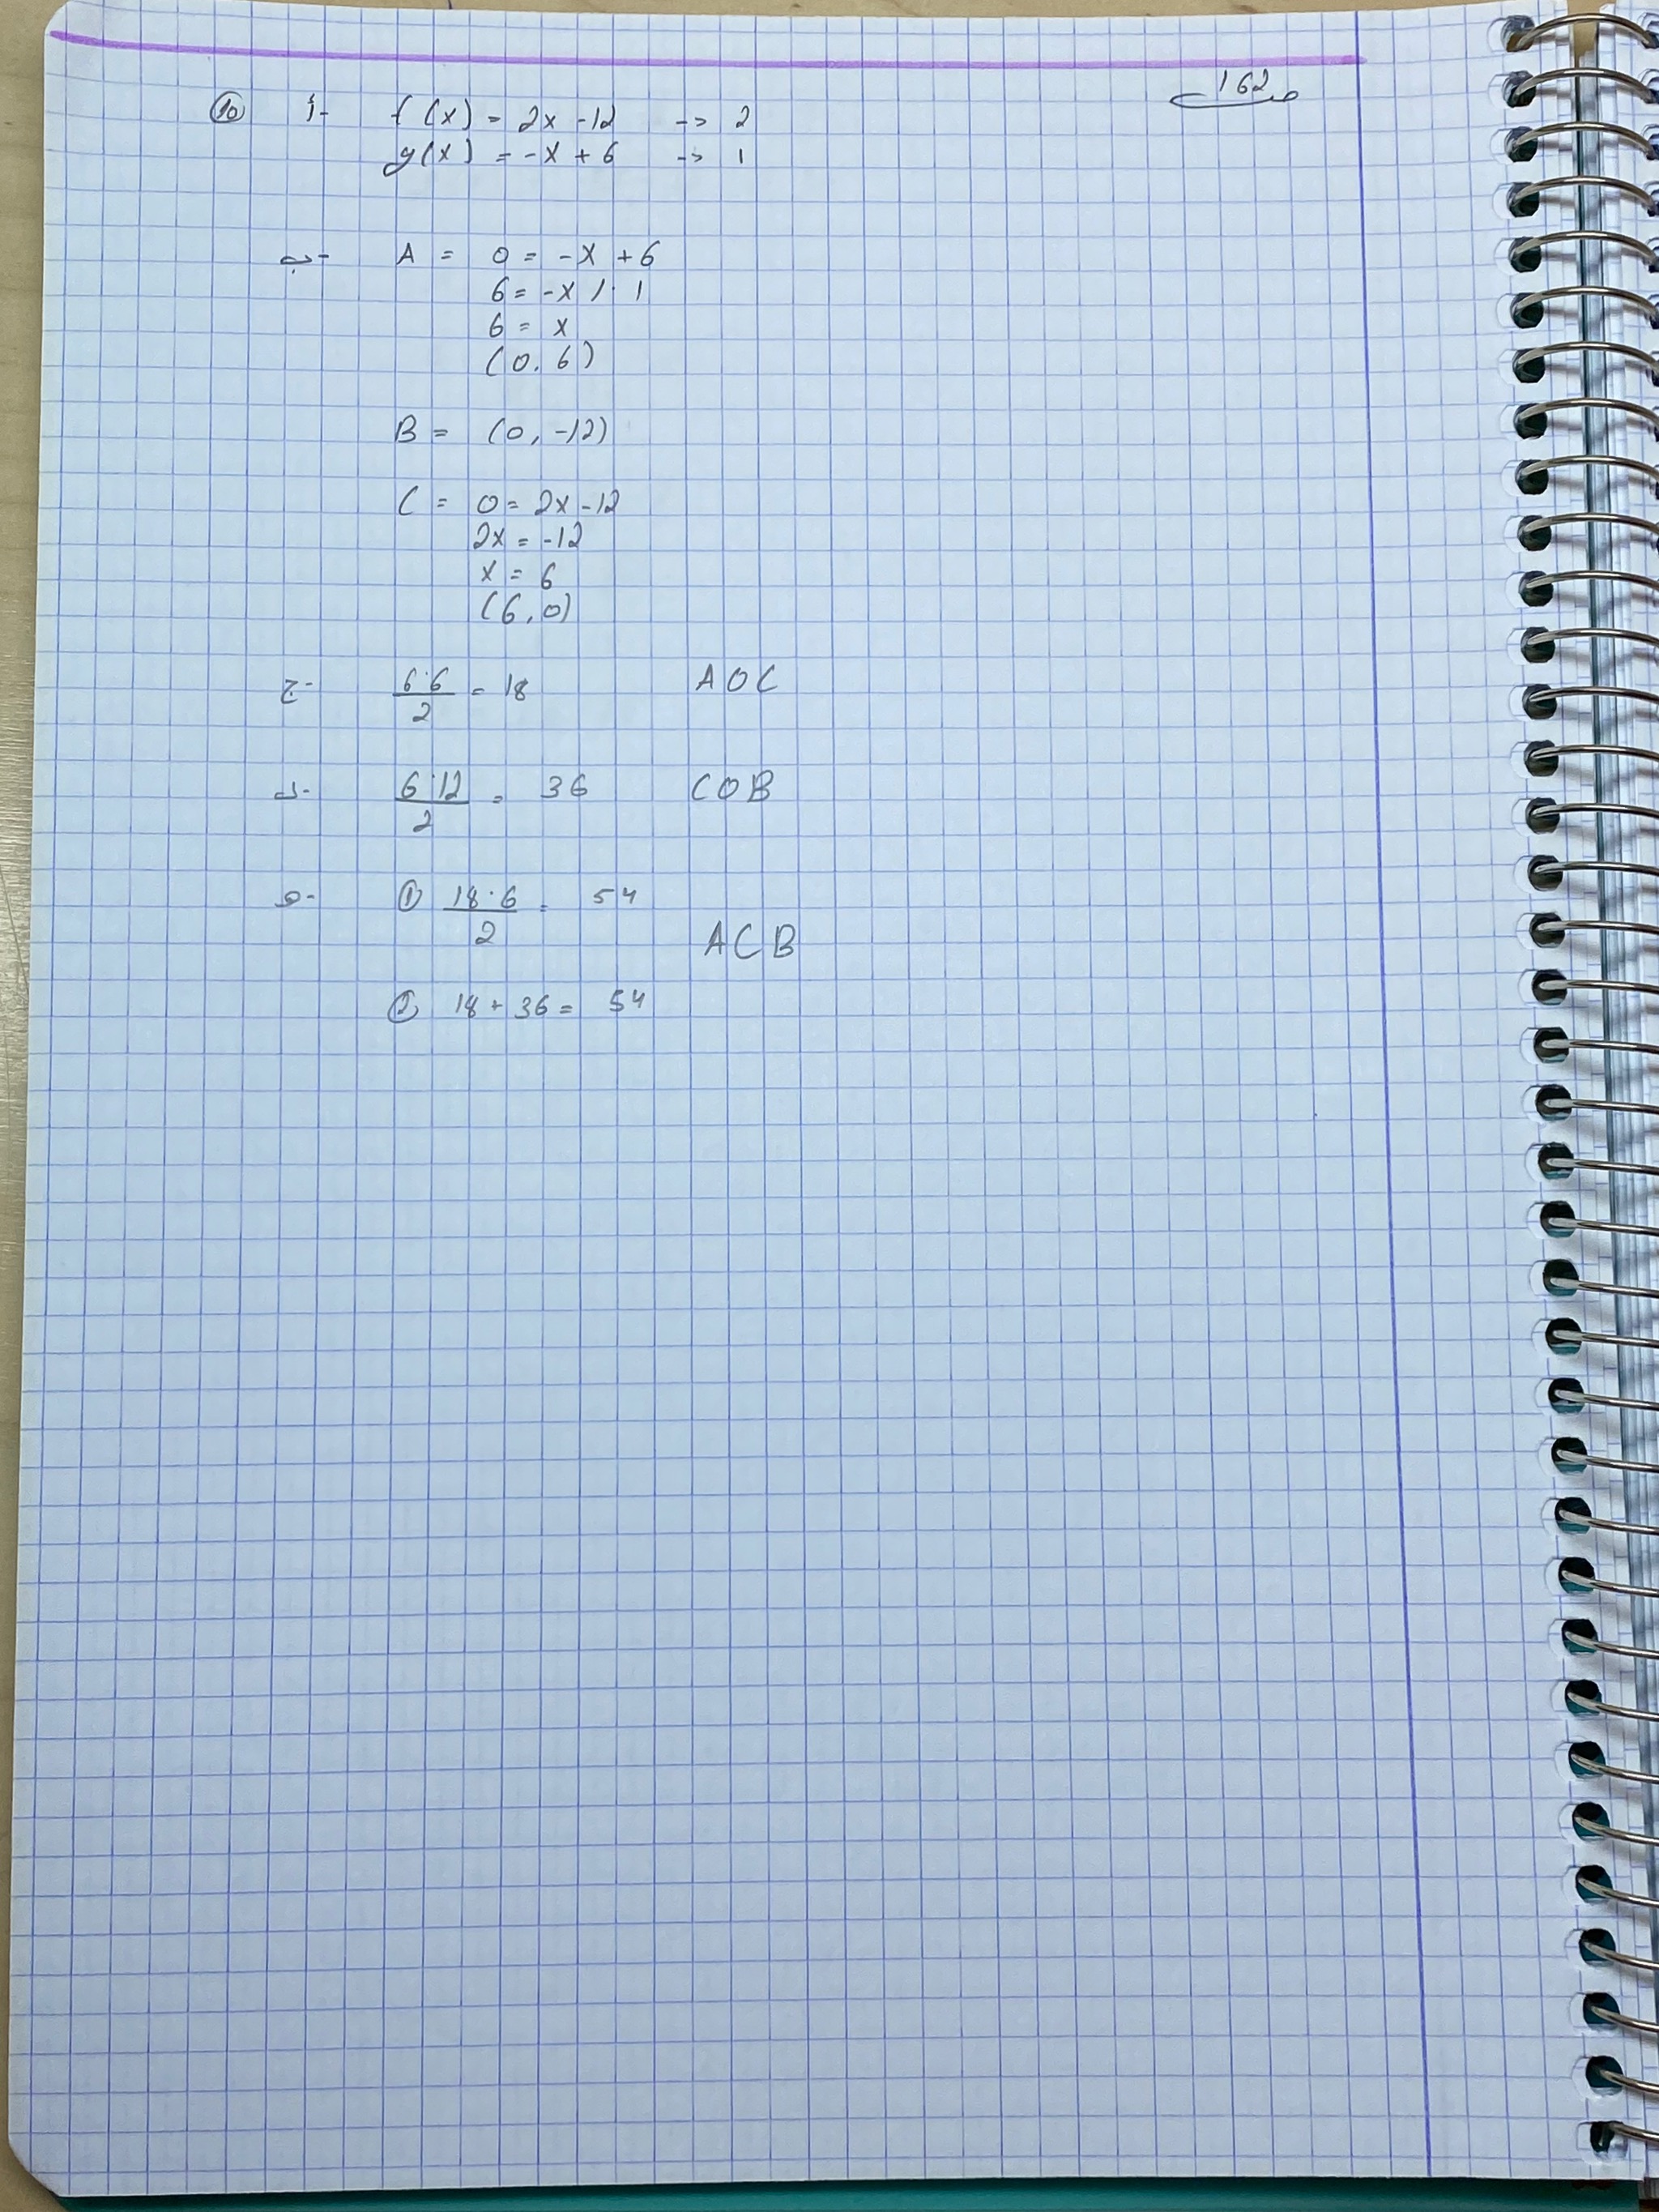 162 ص
⑩ أ- f(x) = 2x -12 -> 2
g(x) = -x + 6 -> 1
ب- A = 0 = -x + 6
6 = -x / · 1
6 = x
(0, 6)
B = (0, -12)
C = 0 = 2x - 12
2x = -12
x = 6
(6, 0)
ج- 6·6/2 = 18 AOC
د- 6·12/2 = 36 COB
ه- ① 18·6/2 = 54
ACB
② 18 + 36 = 54